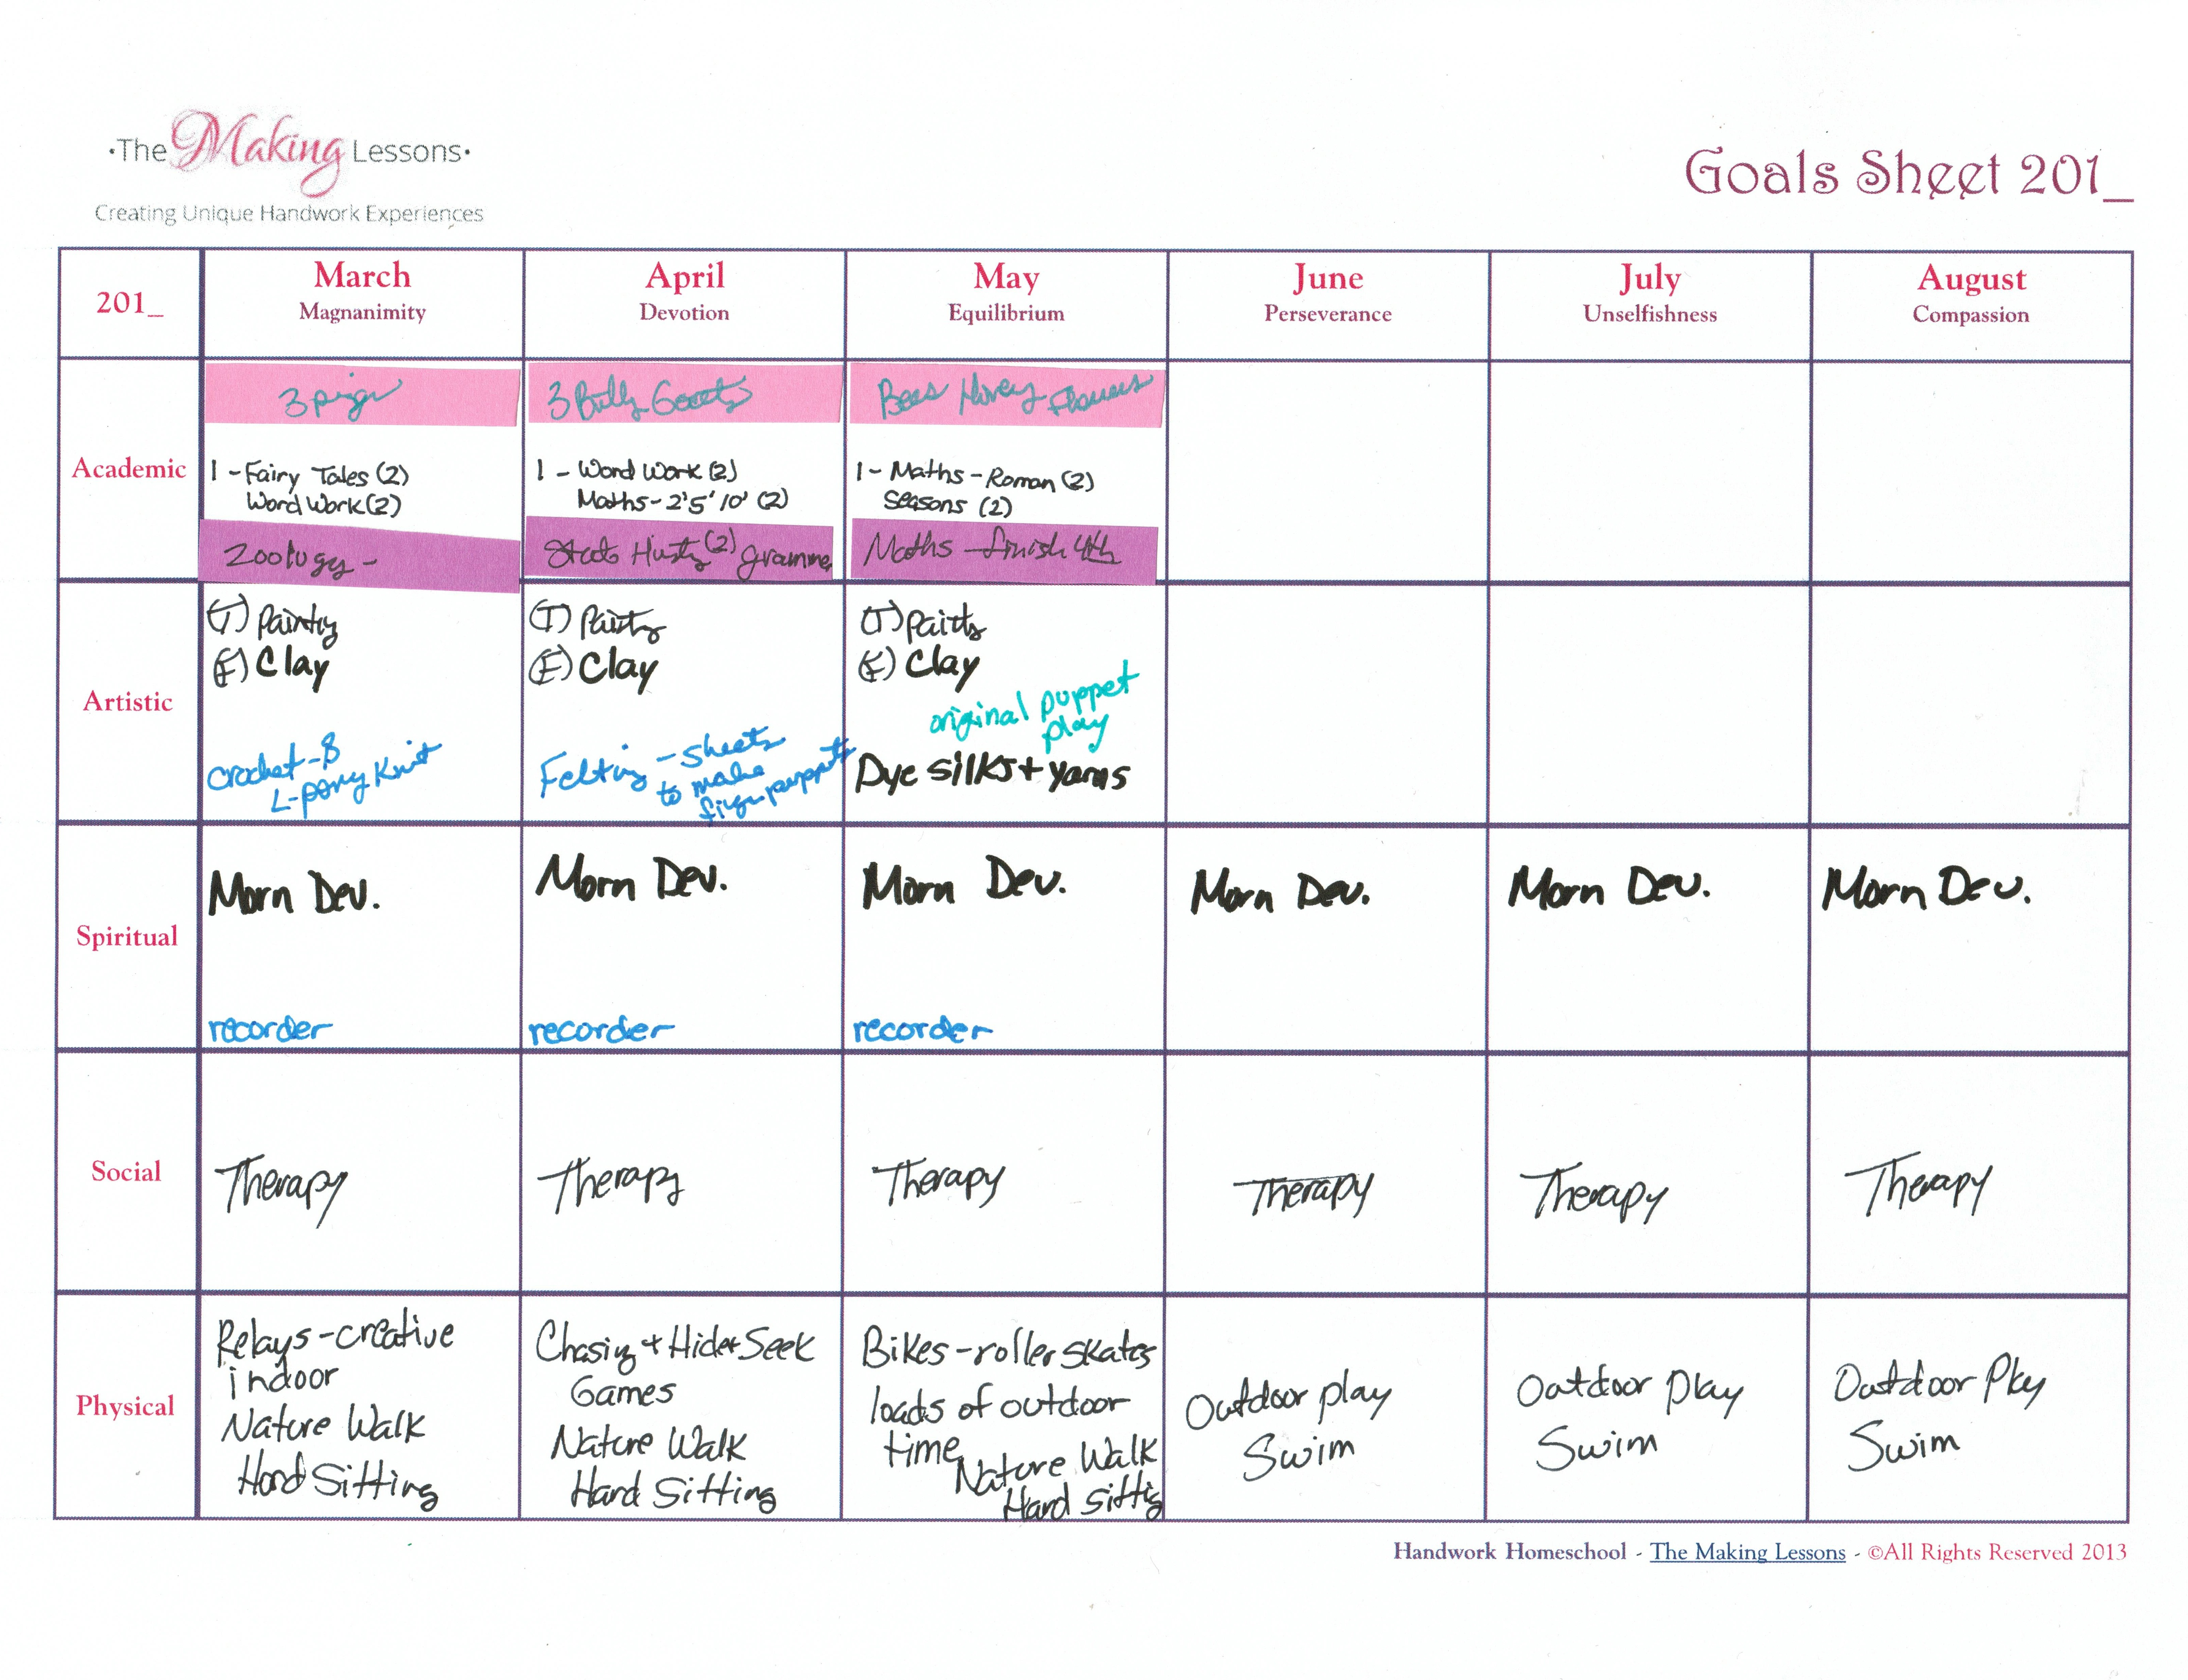 ·The Making Lessons·
Creating Unique Handwork Experiences
Goals Sheet 201_
201_
March
Magnanimity
April
Devotion
May
Equilibrium
June
Perseverance
July
Unselfishness
August
Compassion
Academic
3 pigs
1 - Fairy Tales (2)
Word Work (2)
Zoology -
3 Billy Goats
1 - Word Work (2)
Maths - 2's 5' 10' (2)
State Histy (2) gramme
Bees Honey Flowers
1 - Maths - Roman (2)
Seasons (2)
Maths - finish 4th
Artistic
(T) Painting
(F) Clay
crochet - 8
L - pony Knit
(T) Painting
(F) Clay
Felting - sheets
to make
finger puppets
(T) Painting
(F) Clay
original puppet
play
Dye silks + yarns
Spiritual
Morn Dev.
recorder
Morn Dev.
recorder
Morn Dev.
recorder
Morn Dev.
Morn Dev.
Morn Dev.
Social
Therapy
Therapy
Therapy
Therapy
Therapy
Therapy
Physical
Relays - creative
indoor
Nature Walk
Hard Sitting
Chasing + Hide + Seek
Games
Nature Walk
Hard Sitting
Bikes - roller skates
loads of outdoor
time
Nature Walk
Hard Sitting
Outdoor play
Swim
Outdoor Play
Swim
Outdoor Play
Swim
Handwork Homeschool - The Making Lessons - ©All Rights Reserved 2013